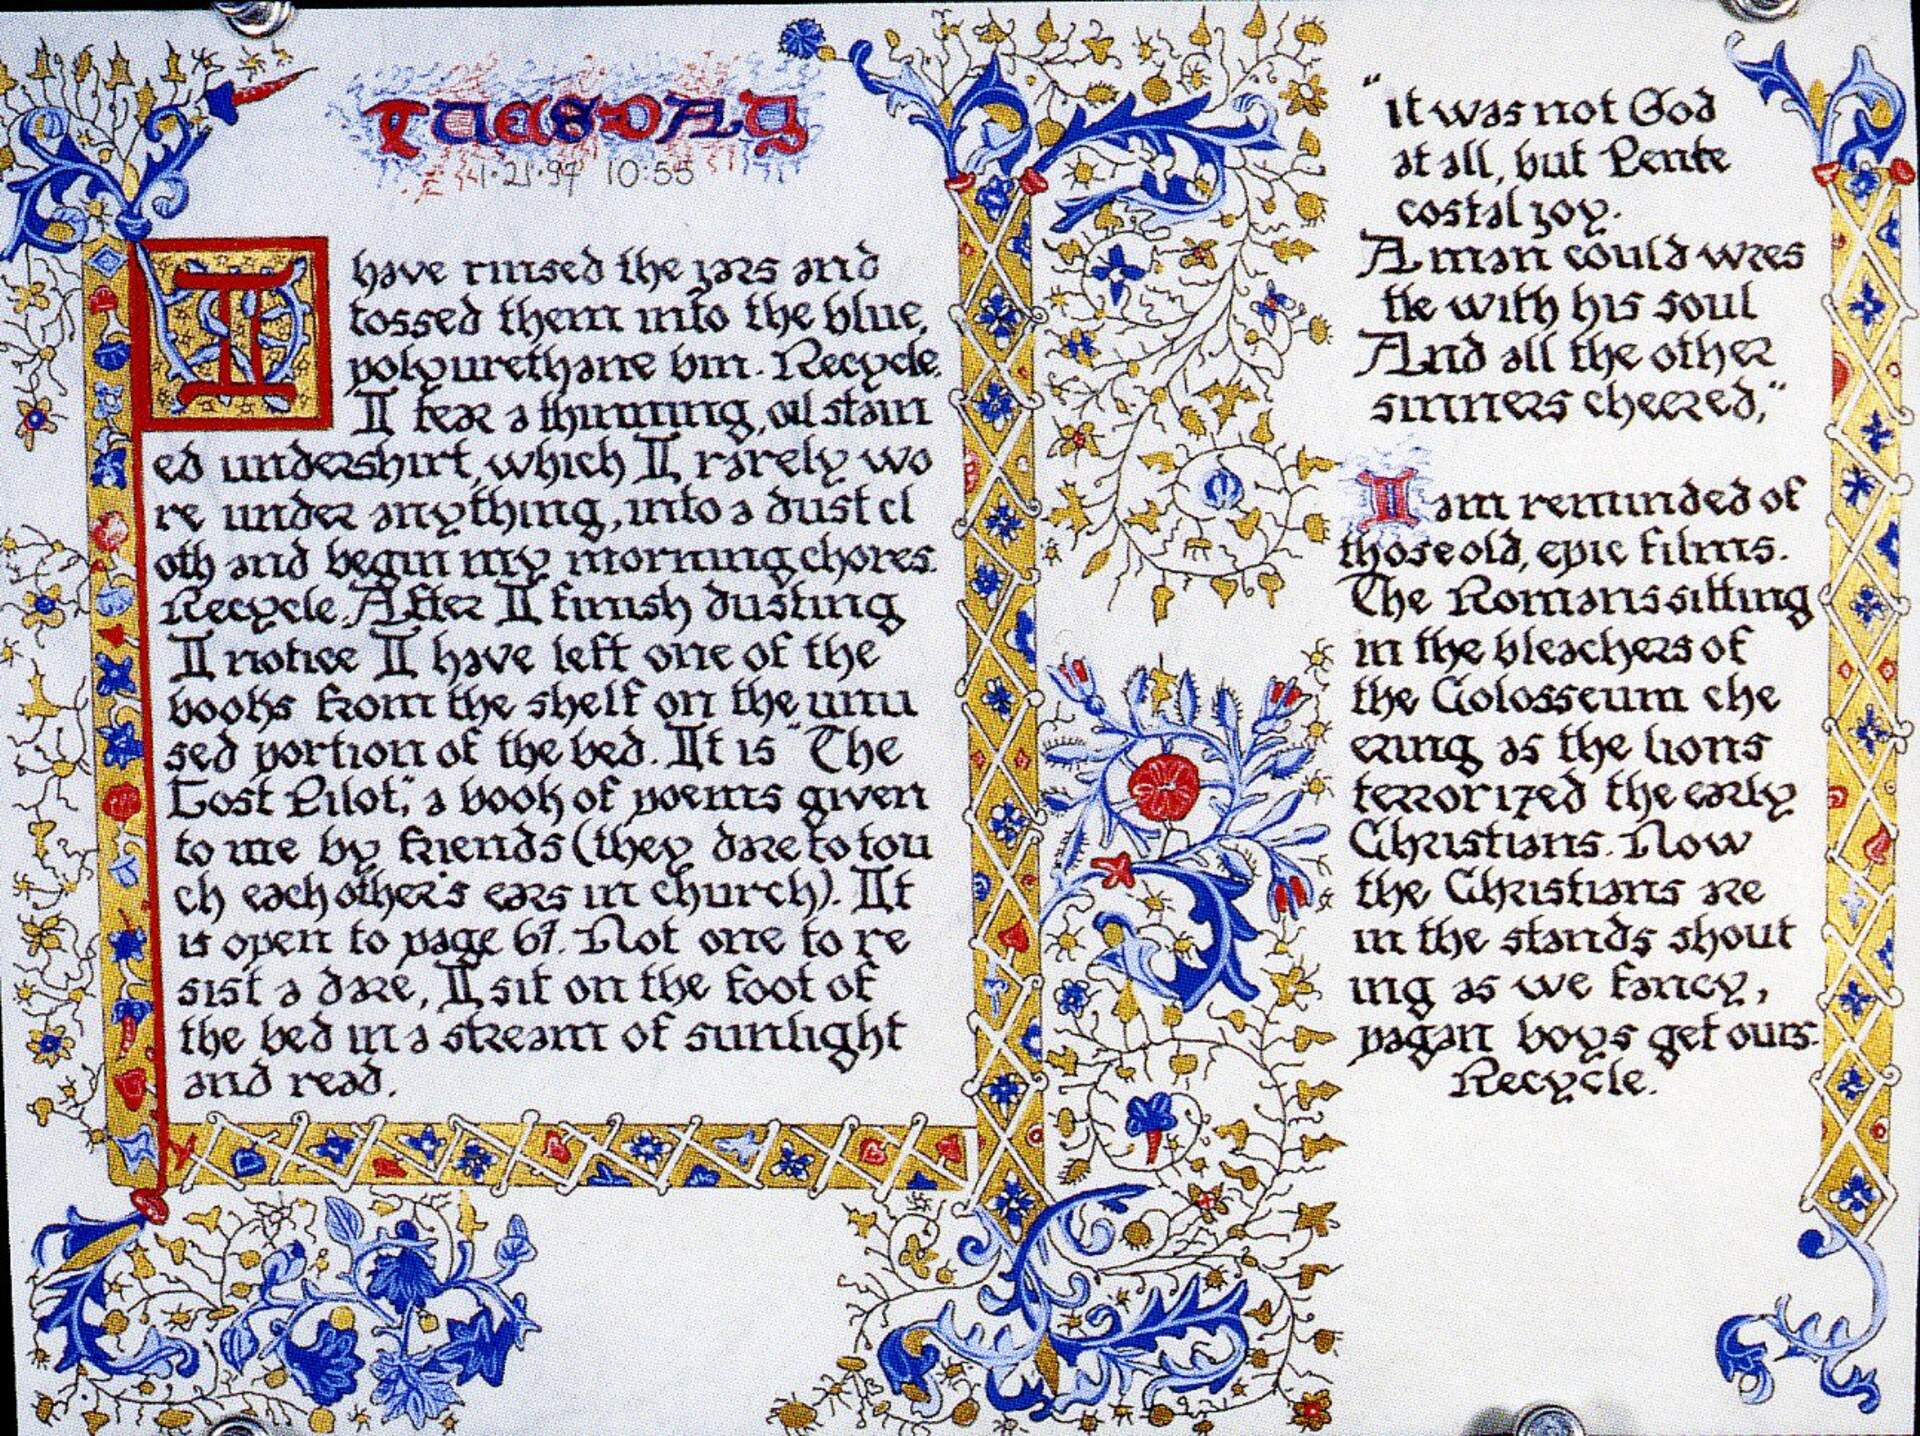 TUESDAY
1·21·97 10:55
I have rinsed the jars and
tossed them into the blue,
polyurethane bin. Recycle.
I tear a thinning, oil stain
ed undershirt, which I rarely wo
re under anything, into a dust cl
oth and begin my morning chores.
Recycle. After I finish dusting
I notice I have left one of the
books from the shelf on the unu
sed portion of the bed. It is "The
Lost Pilot," a book of poems given
to me by friends (they dare to tou
ch each other's ears in church). It
is open to page 67. Not one to re
sist a dare, I sit on the foot of
the bed in a stream of sunlight
and read.
"it was not God
at all, but Pente
costal joy.
A man could wres
tle with his soul
And all the other
sinners cheered,"
I am reminded of
those old, epic films.
The Romans sitting
in the bleachers of
the Colosseum che
ering as the lions
terrorized the early
Christians. Now
the Christians are
in the stands shout
ing as we fancy,
pagan boys get ours.
Recycle.